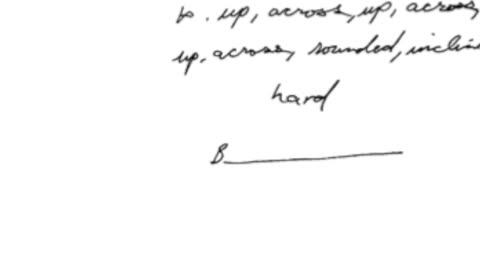 to. up, across, up, across
up, across, sounded,
hard
B